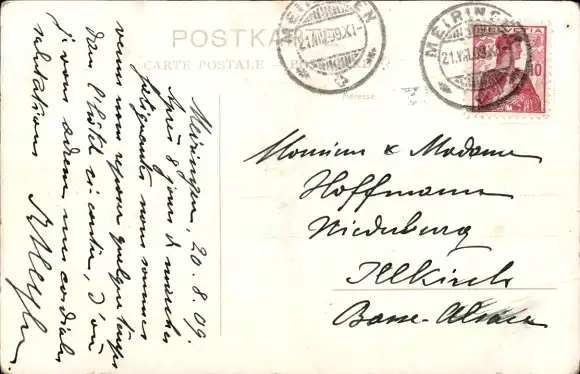 POSTKARTE
CARTE POSTALE
MEIRINGEN
21.VIII.09.XI-
MEIRINGEN
21.VIII.09.XI
HELVETIA
10
Adresse
Monsieur & Madame
Hoffmann
Niederburg
Illkirch
Basse-Alsace
Meiringen, 20.8.09.
Après 8 jours de marches
fatiguantes nous sommes
venus nous reposer quelque temps
dans l'hôtel ci-contre, d'où
je vous adresse mes cordiales
salutations